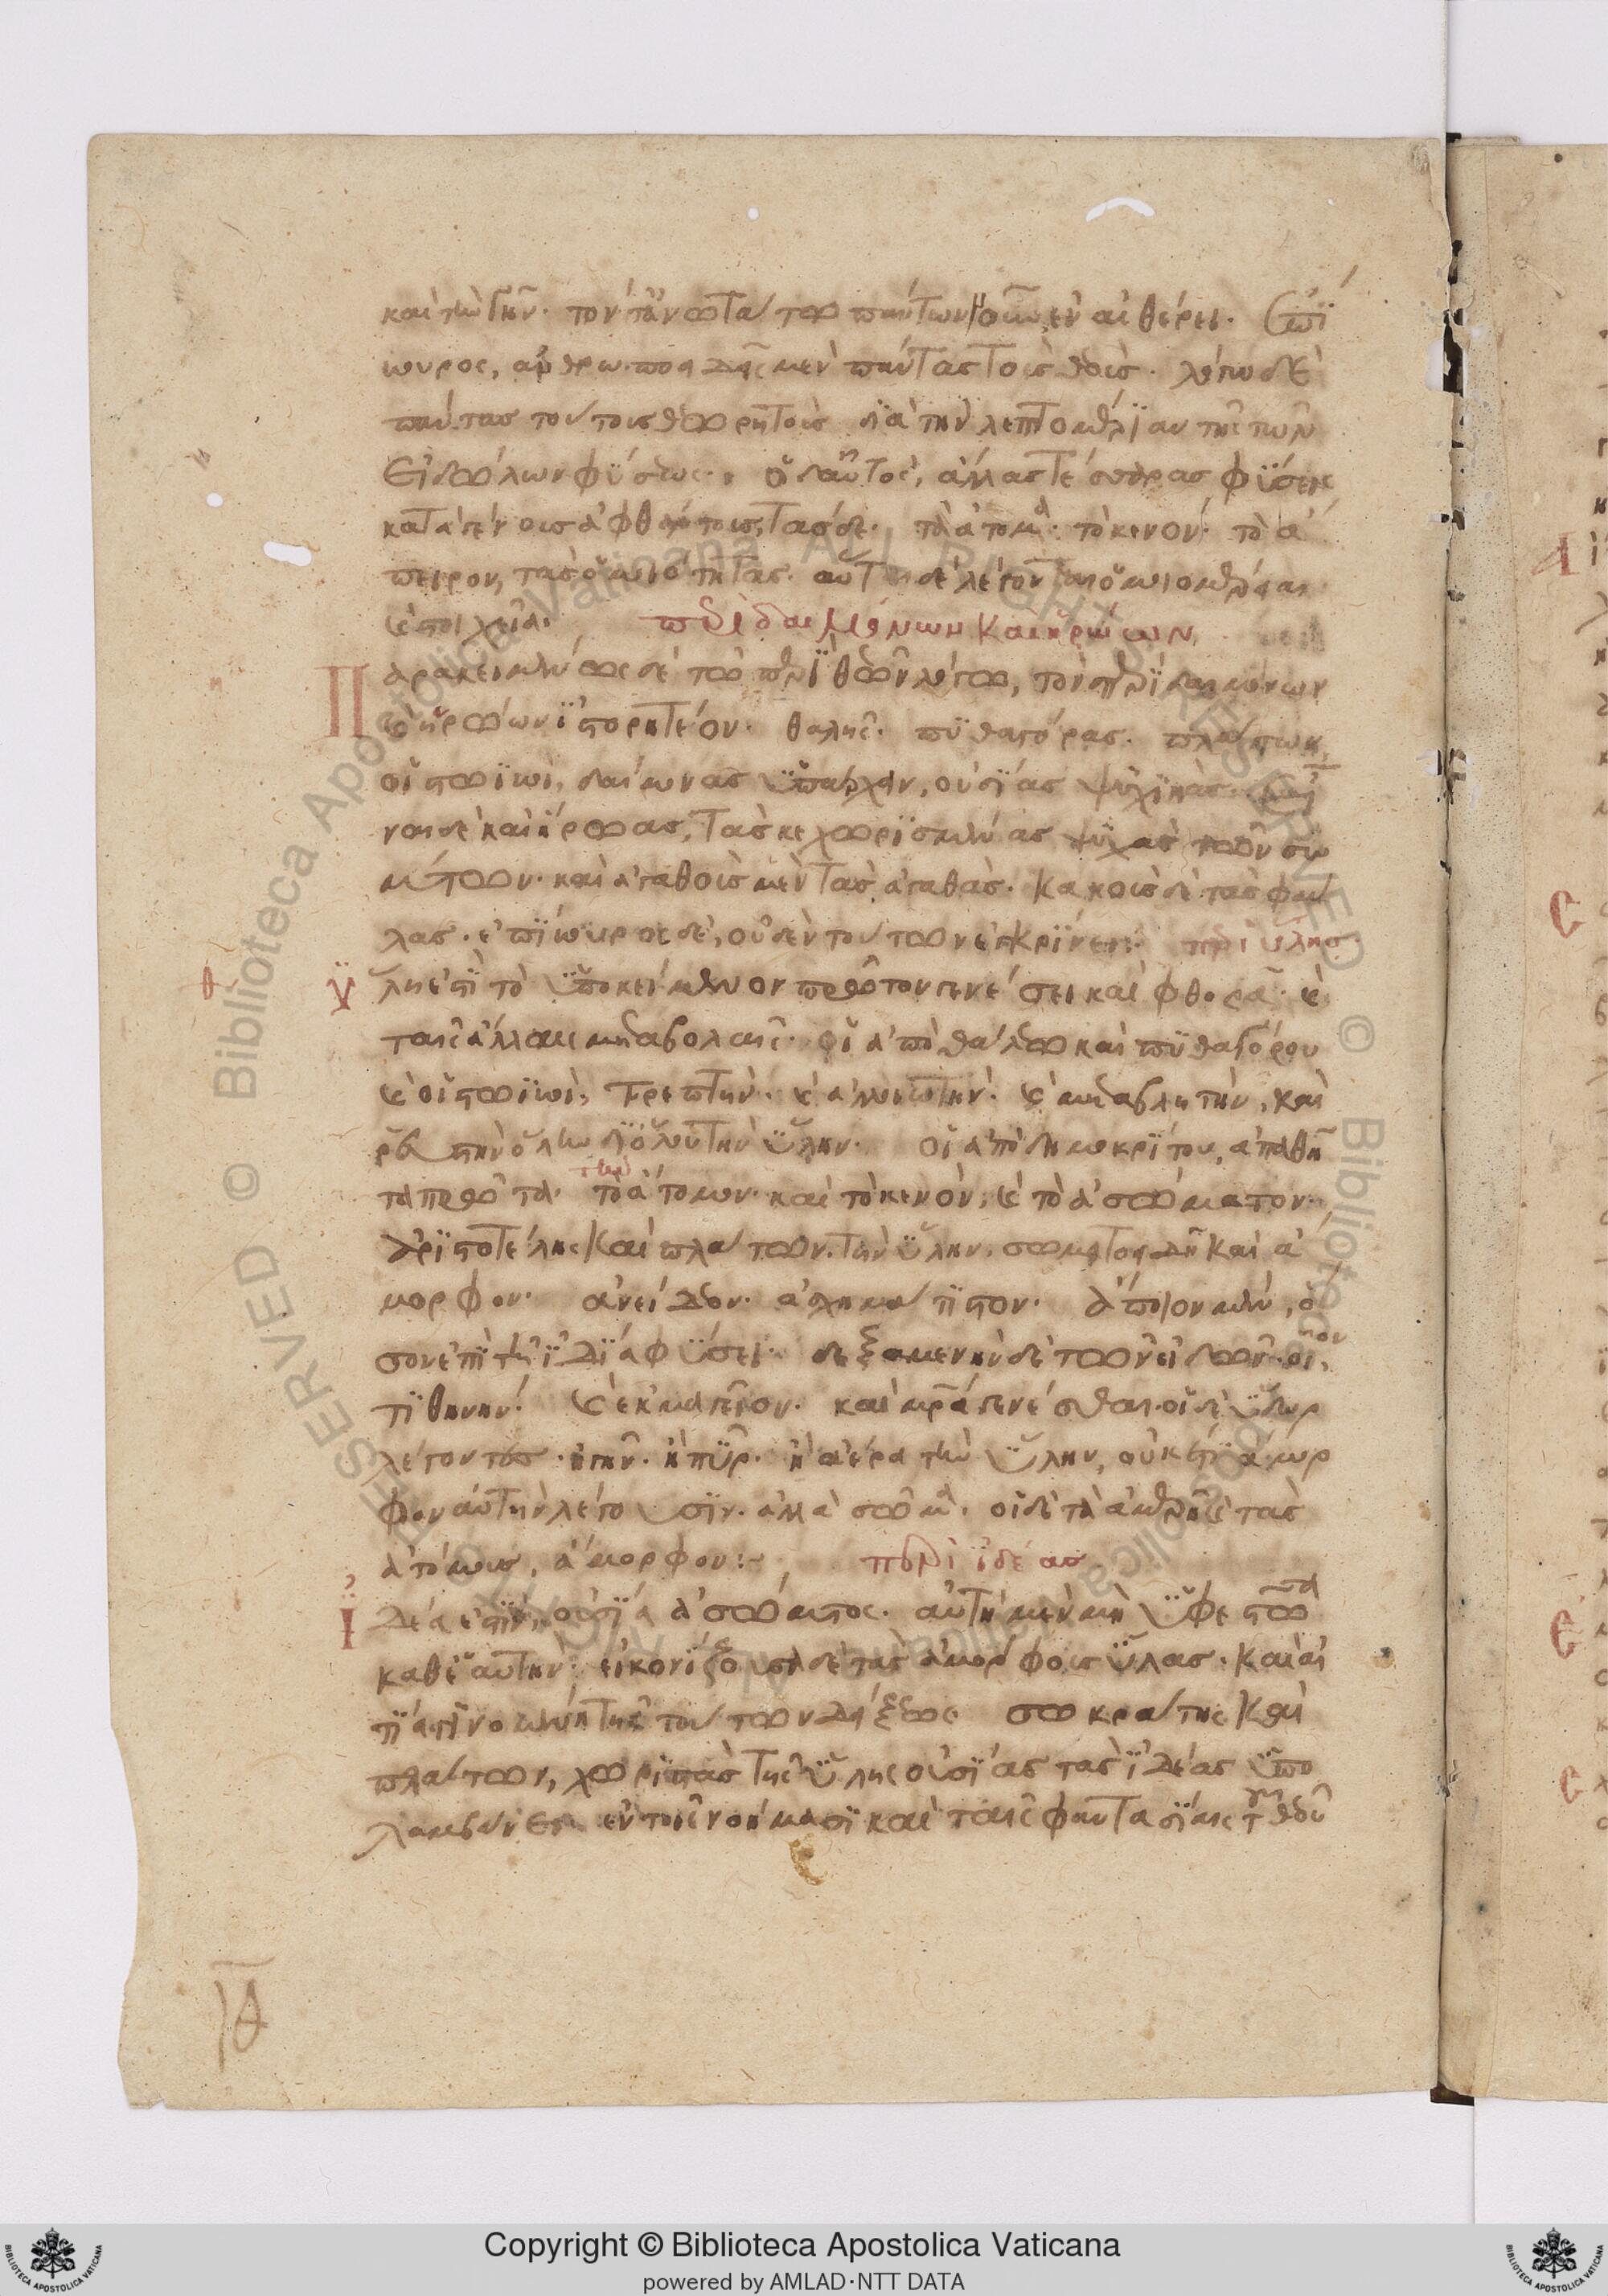 καὶ τὴν γῆν. τὸν τἀνωτάτω πάντων νοῦν ἐν αἰθέρει. Ἐπί
κουρος, ἀνθρωποειδεῖς μὲν πάντας τοὺς θεούς. λόγῳ δὲ
πάντας τούτους θεωρητοὺς διὰ τὴν λεπτομέρειαν τῆς τῶν
εἰδώλων φύσεως. ὁ δ' αὐτὸς, ἄλλας τέσσαρας φύσεις
κατὰ γένος ἀφθάρτους, τάσδε. τὰ ἄτομα. τὸ κενόν. τὸ ἄ
πειρον, τὰς ὁμοιότητας. αὗται δὲ λέγονται ὁμοιομέρειαι
καὶ στοιχεῖα. περὶ δαιμόνων καὶ ἡρώων
Παρακειμένως δὲ τῷ περὶ θεῶν λόγῳ, τὸν περὶ δαιμόνων
καὶ ἡρώων ἱστορητέον. Θαλῆς. πυθαγόρας. πλάτων
οἱ στωϊκοὶ, δαίμονας ὑπάρχειν, οὐσίας ψυχικάς. εἶ
ναι δὲ καὶ ἥρωας, τὰς κεχωρισμένας ψυχὰς τῶν σω
μάτων. καὶ ἀγαθοὺς μὲν τὰς ἀγαθὰς. κακοὺς δὲ τὰς φαύ
λας. ἐπίκουρος δὲ, οὐδὲν τούτων ἐγκρίνει: περὶ ὕλης
ὕλη ἐστὶ τὸ ὑποκείμενον πρῶτον γενέσει καὶ φθορᾷ. καὶ
ταῖς ἄλλαις μεταβολαῖς. οἱ ἀπὸ θάλεω καὶ πυθαγόρου
καὶ οἱ στωϊκοὶ, τρεπτὴν. καὶ ἀλλοιωτὴν. καὶ μεταβλητὴν, καὶ
ῥευστὴν ὅλην δι' ὅλου τὴν ὕλην. οἱ ἀπὸ δημοκρίτου, ἀπαθῆ
τὰ πρῶτα. τὸ ἄτομον. καὶ τὸ κενὸν, καὶ τὸ ἀσώματον.
Ἀριστοτέλης καὶ πλάτων. τὴν ὕλην, σωματοειδῆ καὶ ἄ
μορφον. ἀνείδεον. ἀσχημάτιστον. ἄποιον μὲν, ὅ
σον ἐπὶ τῇ ἰδίᾳ φύσει. δεξαμενὴν δὲ τῶν εἰδῶν. οἷον
τιθήνην. καὶ ἐκμαγεῖον. καὶ μητέρα γενέσθαι. οἱ δὲ ὕδωρ
λέγοντες. ἢ γῆν. ἢ πῦρ. ἢ ἀέρα τὴν ὕλην, οὐκέτι ἄμορ
φον αὐτὴν λέγουσιν. ἀλλὰ σῶμα. οἱ δὲ τὰ ἀμερῆ καὶ τὰς
ἀτόμους, ἄμορφον: περὶ ἰδέας
Ἰδέα ἐστὶν, οὐσία ἀσώματος. αὐτὴ μὲν μὴ ὑφεστῶσα
καθ' αὑτὴν. εἰκονίζουσα δὲ τὰς ἀμόρφους ὕλας. καὶ αἰ
τία γινομένη τῆς τούτων δείξεως σωκράτης καὶ
πλάτων, χωριστὰς τῆς ὕλης οὐσίας τὰς ἰδέας ὑπο
λαμβάνει ἐν τοῖς νοήμασι καὶ ταῖς φαντασίαις τοῦ θεοῦ
Copyright © Biblioteca Apostolica Vaticana
powered by AMLAD·NTT DATA